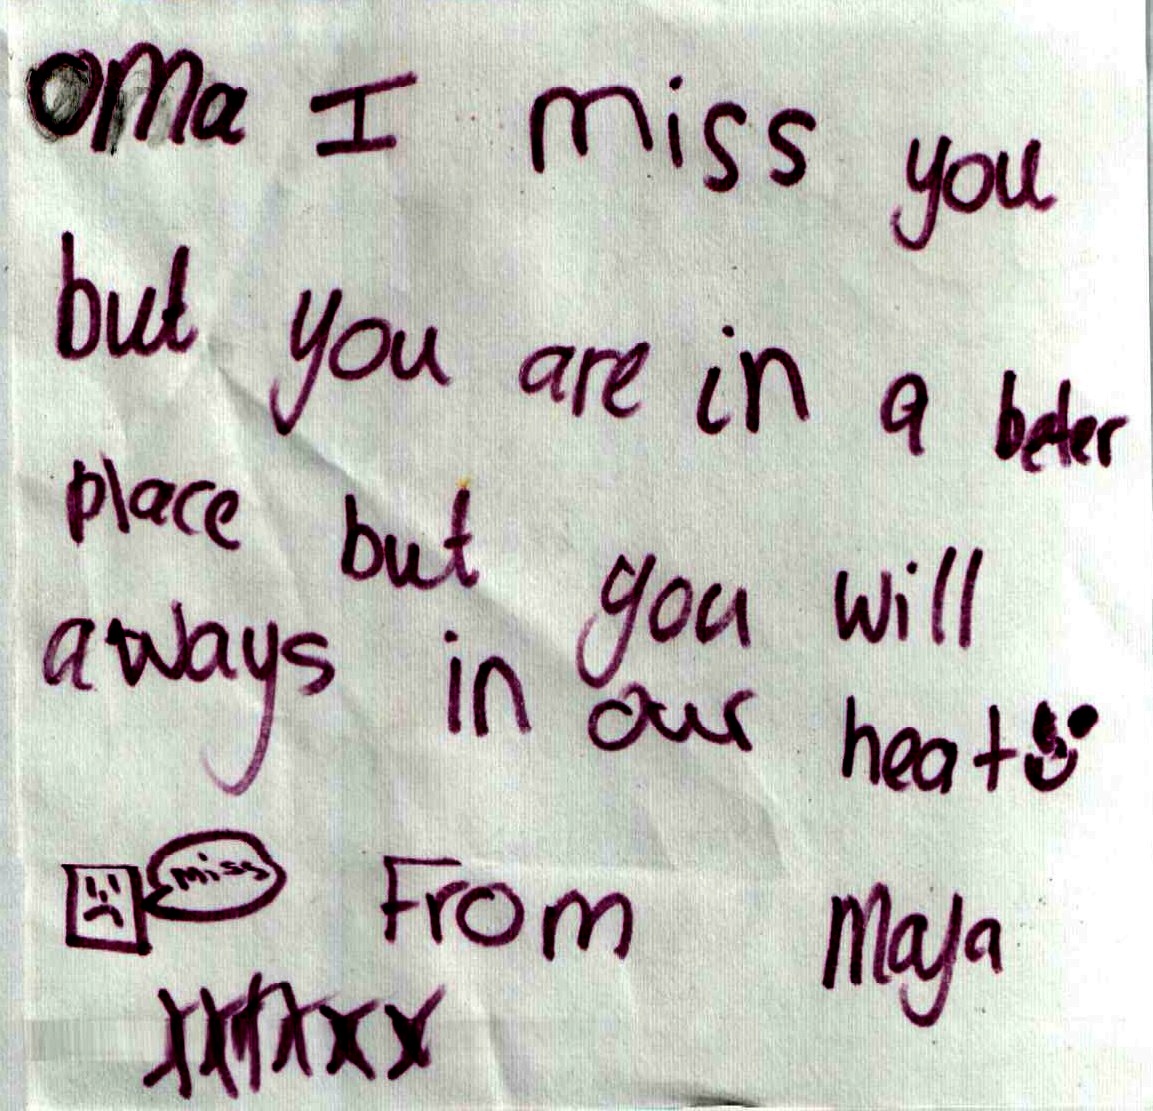 oma I miss you
but you are in a beter
place but you will
aways in our heat
miss From Maja
xxxxxx